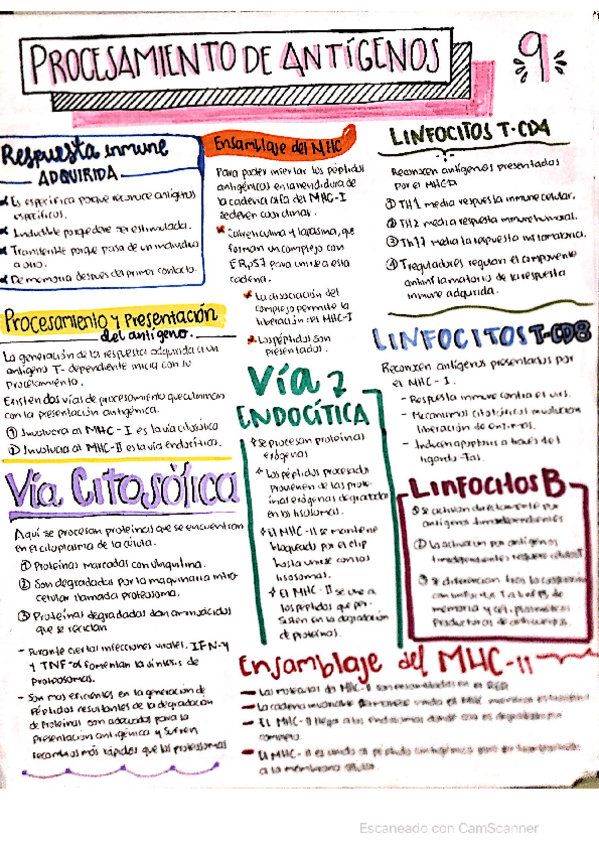 PROCESAMIENTO DE ANTÍGENOS
9
Respuesta inmune
ADQUIRIDA
Es específica porque reconoce antígenos
específicos.
Inducible porque debe ser estimulada.
Transferible porque pasa de un individuo
a otro.
De memoria después del primer contacto.
Procesamiento y Presentación
del antígeno.
La generación de la respuesta adquirida a un
antígeno T-dependiente inicia con su
procesamiento.
Existen dos vías de procesamiento que culminan
con la presentación antigénica.
① Involucra al MHC-I es la vía citosólica
② Involucra al MHC-II es la vía endocítica.
Vía CITOSÓLICA
Aquí se procesan proteínas que se encuentran
en el citoplasma de la célula.
① Proteínas marcadas con ubiquitina.
② Son degradadas por la maquinaria intra-
celular llamada proteosoma.
③ Proteínas degradadas dan aminoácidos
que se reciclan
- Durante ciertas infecciones virales, IFN-γ
y TNF-α fomentan la síntesis de
Proteosomas.
- Son mas eficientes en la generación de
Péptidos resultantes de la degradación
de Proteínas con adecuados para la
Presentación antigénica y sufren
recambios más rápidos que los proteosomas
Ensamblaje del MHC
Para poder insertar los péptidos
antigénicos en la hendidura de
la cadena alfa del MHC-I
se deben coordinar.
Calreticulina y tapasina, que
forman un complejo con
ERp57 para unirse a esta
cadena.
La disociación del
complejo permite la
liberación del MHC-I
Los péptidos son
presentados.
Vía 2
ENDOCÍTICA
Se procesan proteínas
exógenas
Los péptidos procesados
provienen de las prote-
ínas exógenas degradadas
en los lisosomas.
El MHC-II se mantiene
bloqueado por el clip
hasta unirse con los
lisosomas.
El MHC-II se une a
los péptidos que per-
sisten en la degradación
de proteínas.
LINFOCITOS T-CD4
Reconocen antígenos presentados
por el MHC-II
① TH1 media respuesta inmune celular.
② TH2 media respuesta inmune humoral.
③ TH17 media la respuesta inflamatoria.
④ Treguladores regulan el componente
antiinflamatorio de la respuesta
inmune adquirida.
LINFOCITOS T-CD8
Reconocen antígenos presentados por
el MHC-I.
- Respuesta inmune contra el virus.
- Mecanismos citotóxicos involucran
liberación de
- Inducen apoptosis a través del
ligando Fas.
Linfocitos B
① Se activan directamente por
antígenos timoindependientes
② La activación por antígenos
requiere
③ Se diferencian tras la
memoria y cel. plasmáticas
Productoras de anticuerpos.
Ensamblaje del MHC-II
- Las moléculas de MHC-II son ensambladas en el RER
- La cadena invariante
- El MHC-II llega a los endosomas donde son es degradado por
complejo
- El MHC-II es unido al péptido antigénico para
a la membrana celular
Escaneado con CamScanner